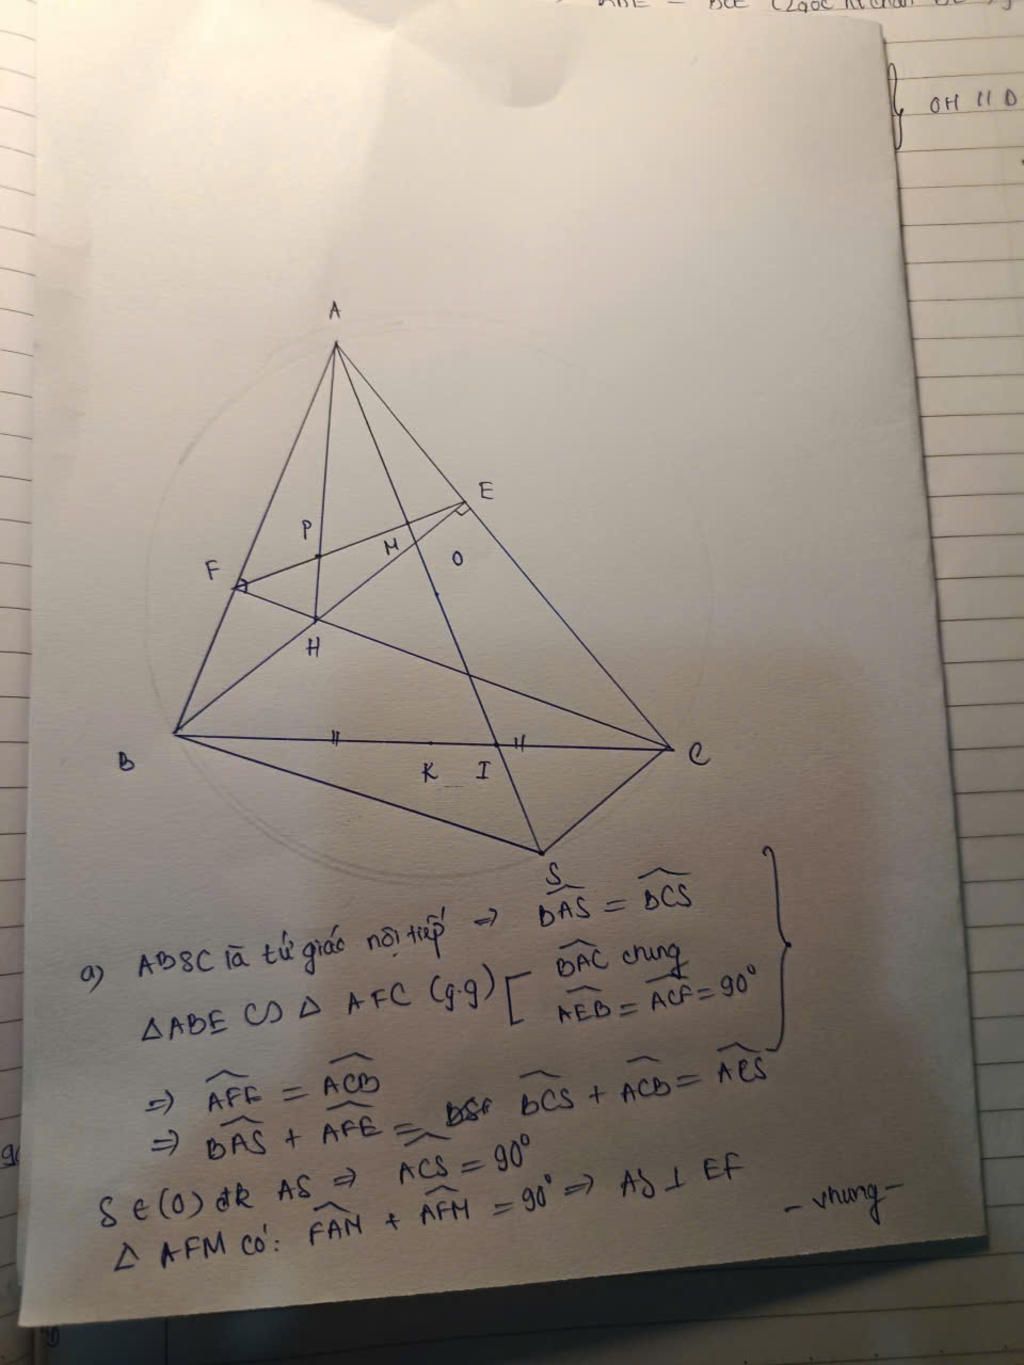 OH // D
A
E
P
M
O
F
H
B
K
I
C
S
a) ABSC là tứ giác nội tiếp => BAS = BCS
ΔABE ∽ Δ AFC (g.g) [ BAC chung
AEB = ACF = 90°
=> AFE = ACB
=> BAS + AFE = BCS + ACB = ACS
S ∈ (O) đk AS => ACS = 90°
Δ AFM có: FAM + AFM = 90° => AS ⊥ EF
- nhung -